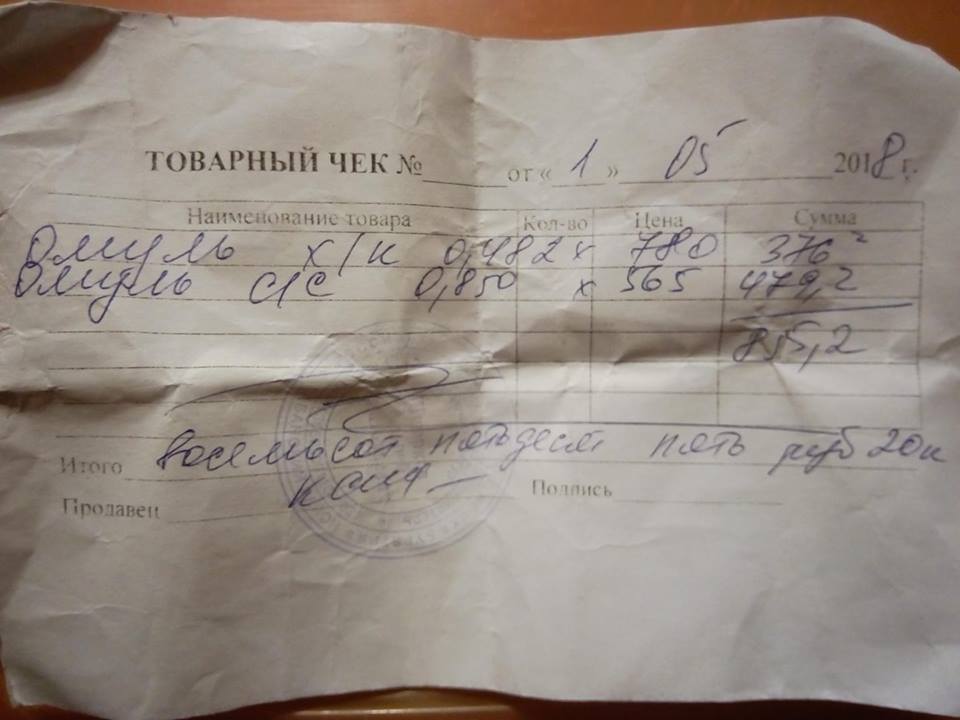 ТОВАРНЫЙ ЧЕК № от « 1 » 05 2018 г.
Наименование товара Кол-во Цена Сумма
Омуль х/к 0,482 х 780 376
Омуль с/с 0,850 х 565 479,2
855,2
Итого восемьсот пятьдесят пять руб 20 к
Продавец Подпись